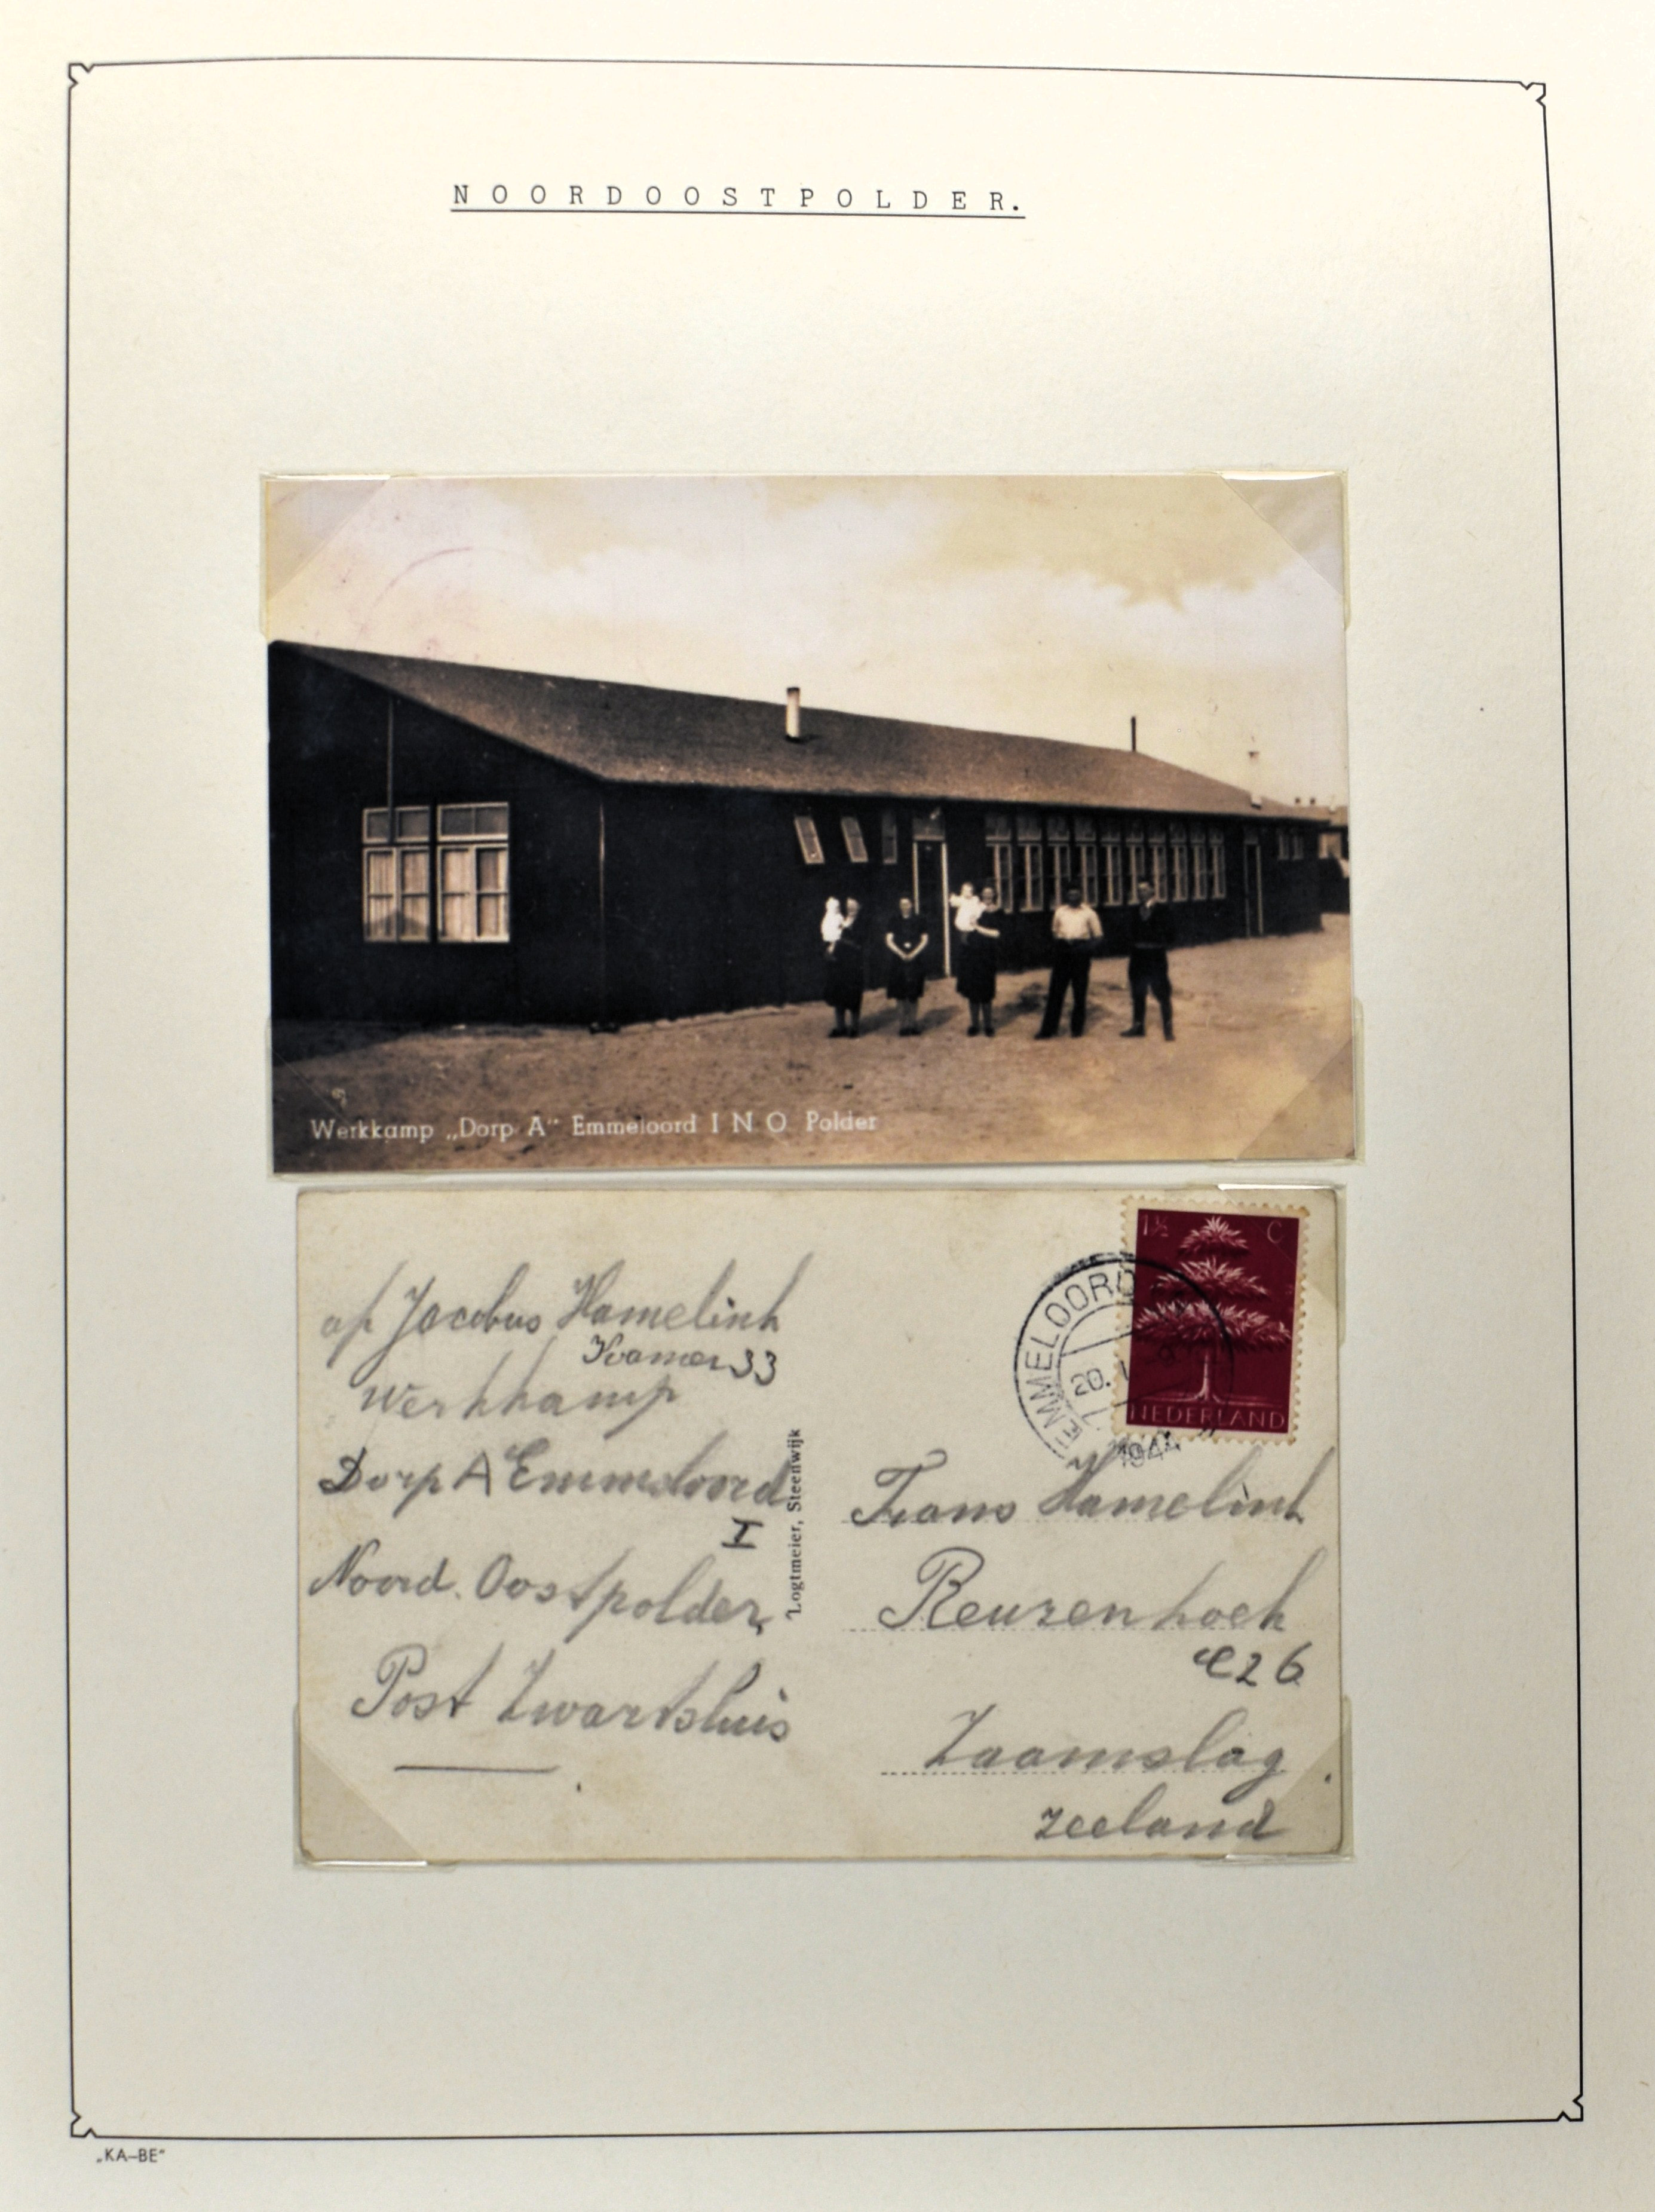 NOORDOOSTPOLDER.
Werkkamp „Dorp A“ Emmeloord I N O Polder
af Jacobus Hamelink
Kamer 33
Werkkamp
Dorp A Emmeloord
I
Noord. Oostpolder,
Post Zwartsluis
Logtmeier, Steenwijk
1½ C
NEDERLAND
EMMELOORD
20.
1944
Frans Hamelink
Reuzenhoek
C26
Zaamslag
Zeeland
„KA–BE“